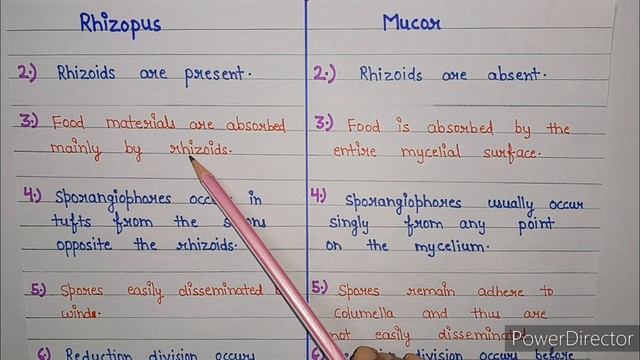 Rhizopus
2.) Rhizoids are present.
3.) Food materials are absorbed
mainly by rhizoids.
4.) Sporangiophores in
tufts from the
opposite the rhizoids.
5.) Spores easily disseminated
winds.
6.) Reduction division occurs
Mucor
2.) Rhizoids are absent.
3.) Food is absorbed by the
entire mycelial surface.
4.) Sporangiophores usually occur
singly from any point
on the mycelium.
5.) Spores remain adhere to
columella and thus are
not easily disseminated
division occurs before
PowerDirector